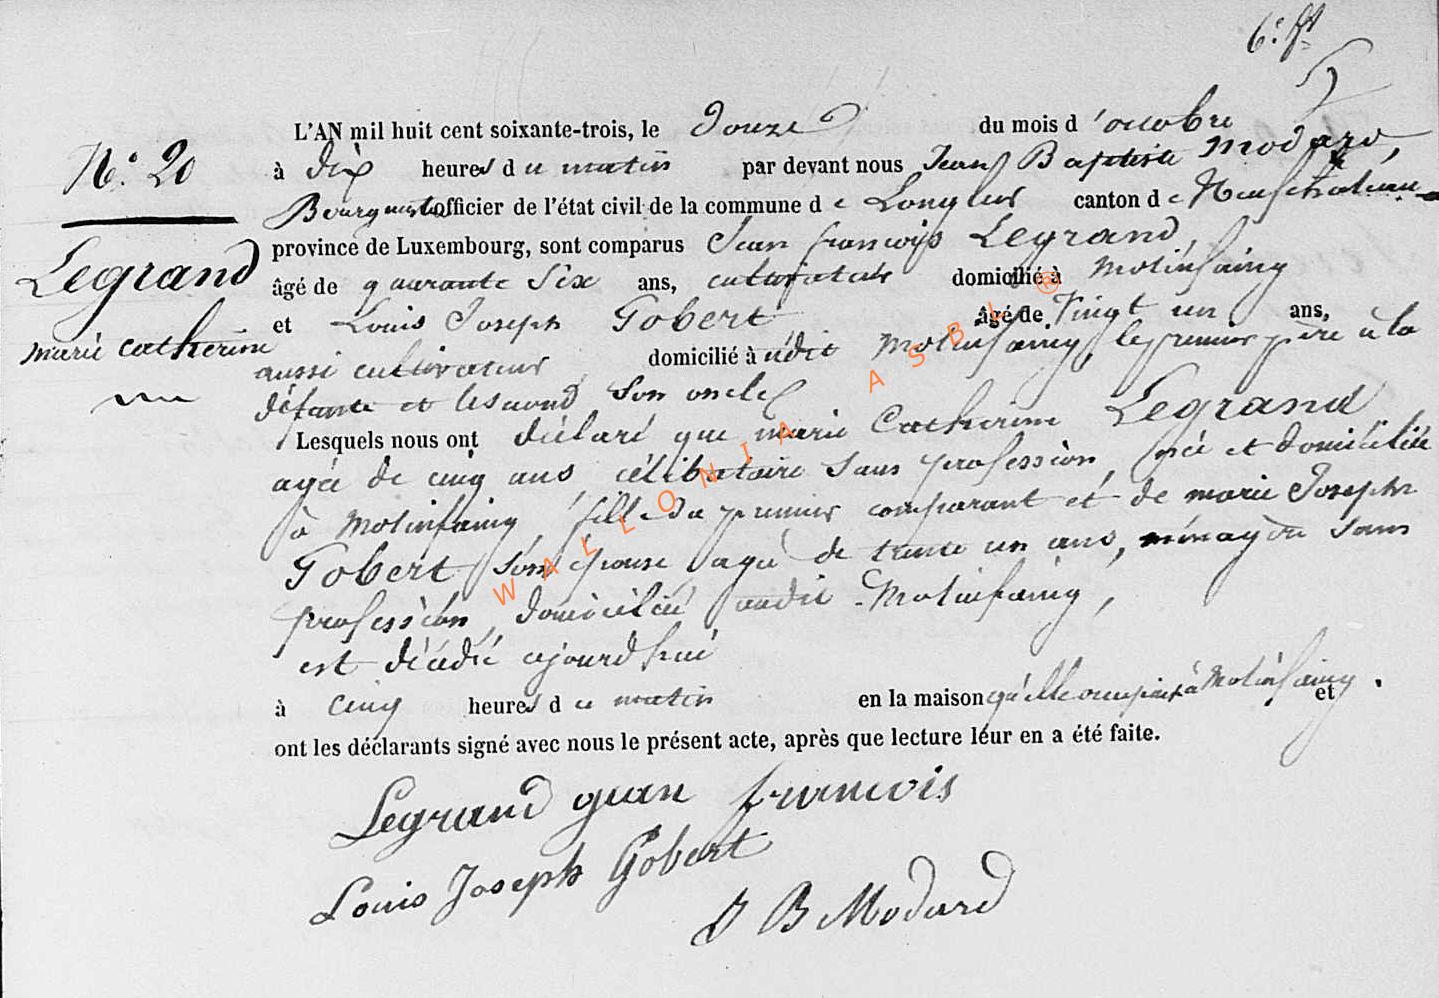 N° 20
Legrand
marie catherine
L'AN mil huit cent soixante-trois, le Douze du mois d'octobre
à dix heures du matin par devant nous Jean Baptiste Modard,
Bourgmestre officier de l'état civil de la commune de Longlier canton de Neufchateau
province de Luxembourg, sont comparus Jean françois Legrand,
âgé de quarante Six ans, cultivateur domicilié à Molinfaing
et Louis Joseph Gobert âgé de Vingt un ans,
aussi cultivateur domicilié à udit Molinfaing, le premier père à la
défunte et lesecond son oncle
Lesquels nous ont déclaré que marie Catherine Legrand
agée de cinq ans célibataire Sans profession, née et domiciliée
à Molinfaing, fille du premier comparant et de marie Joseph
Gobert son épouse agée de trente un ans, ménagère sans
profession, domiciliée audit Molinfaing,
est décédée ajourd'hui
à cinq heures du matin en la maison qu'elle occupait à Molinfaing. et
ont les déclarants signé avec nous le présent acte, après que lecture leur en a été faite.
Legrand jean francois
Louis Joseph Gobert
J B Modard
WALLONIA ASBL ®